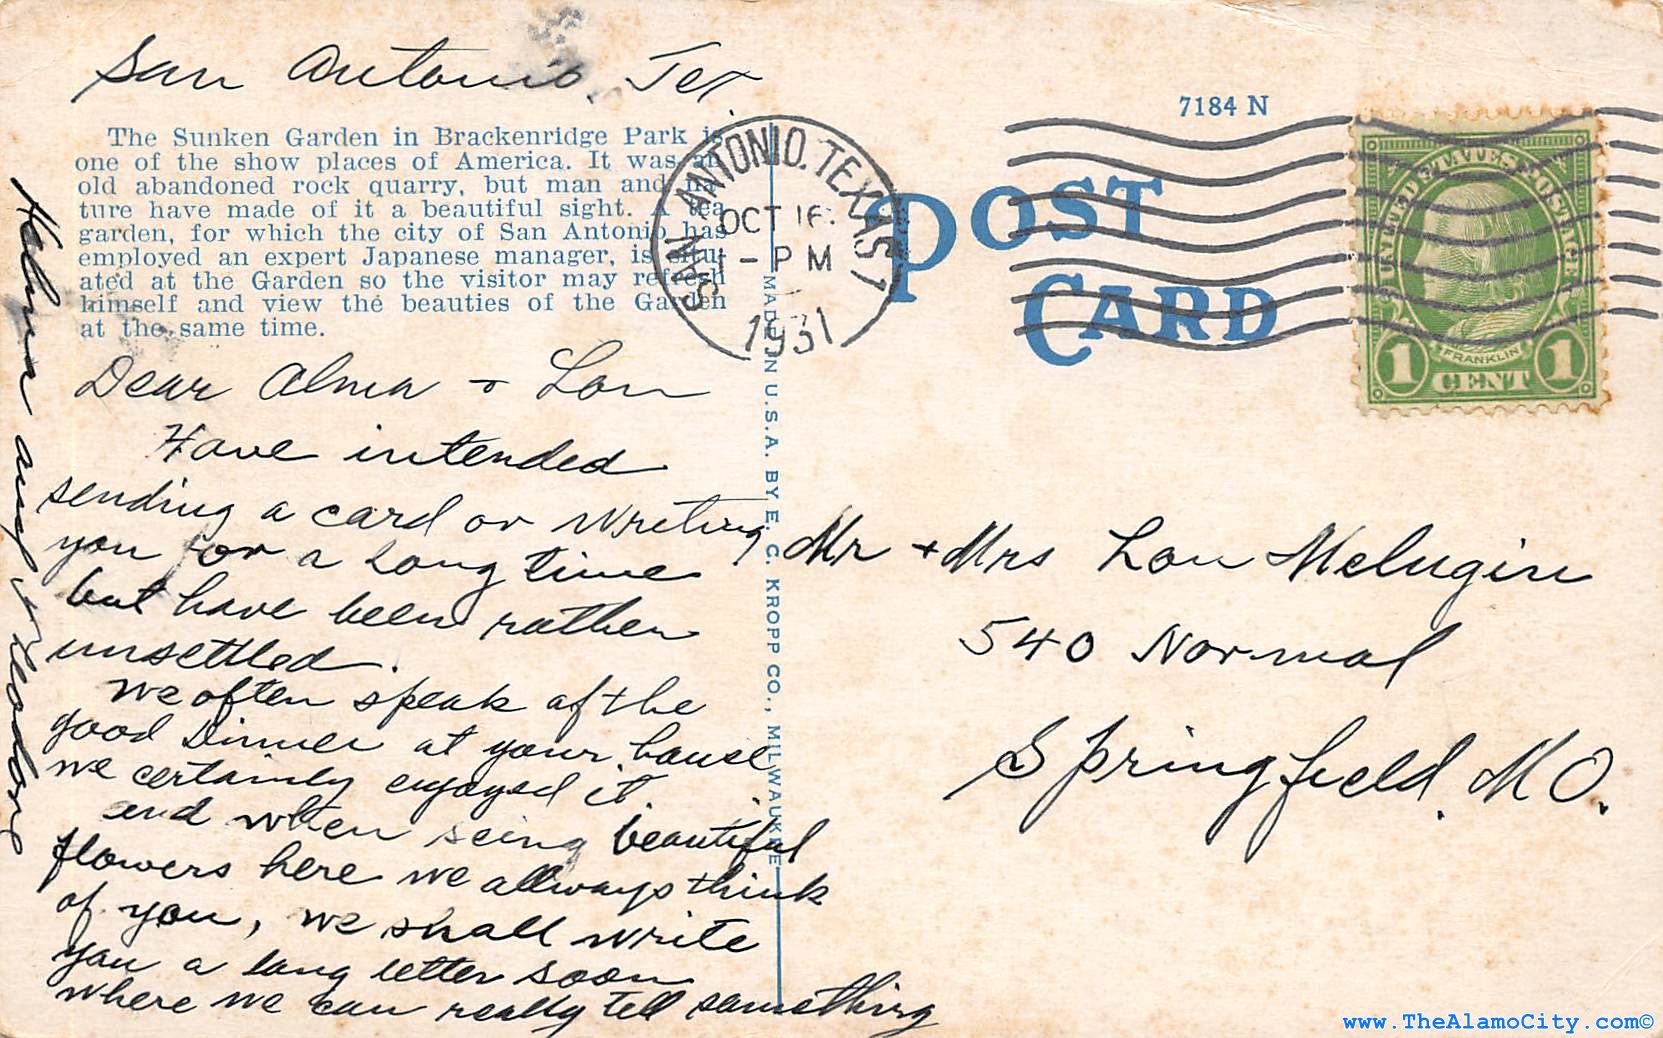 San Antonio, Tex
The Sunken Garden in Brackenridge Park is
one of the show places of America. It was an
old abandoned rock quarry, but man and na-
ture have made of it a beautiful sight. A tea
garden, for which the city of San Antonio has
employed an expert Japanese manager, is situ-
ated at the Garden so the visitor may refresh
himself and view the beauties of the Garden
at the same time.
Dear Alma + Lon
Have intended
sending a card or writing
you for a long time
but have been rather
unsettled.
we often speak of the
good Dinner at your house
we certainly enjoyed it.
and when seing beautiful
flowers here we allways think
of you, we shall write
you a long letter soon
where we can really tell something
and
SAN ANTONIO, TEXAS 1
OCT 16
- PM
1931
MADE IN U.S.A. BY E. C. KROPP CO., MILWAUKEE
7184 N
POST
CARD
UNITED STATES POSTAGE
FRANKLIN
1 CENT 1
Mr + Mrs Lon Melugin
540 Normal
Springfield, MO.
www.TheAlamoCity.com©